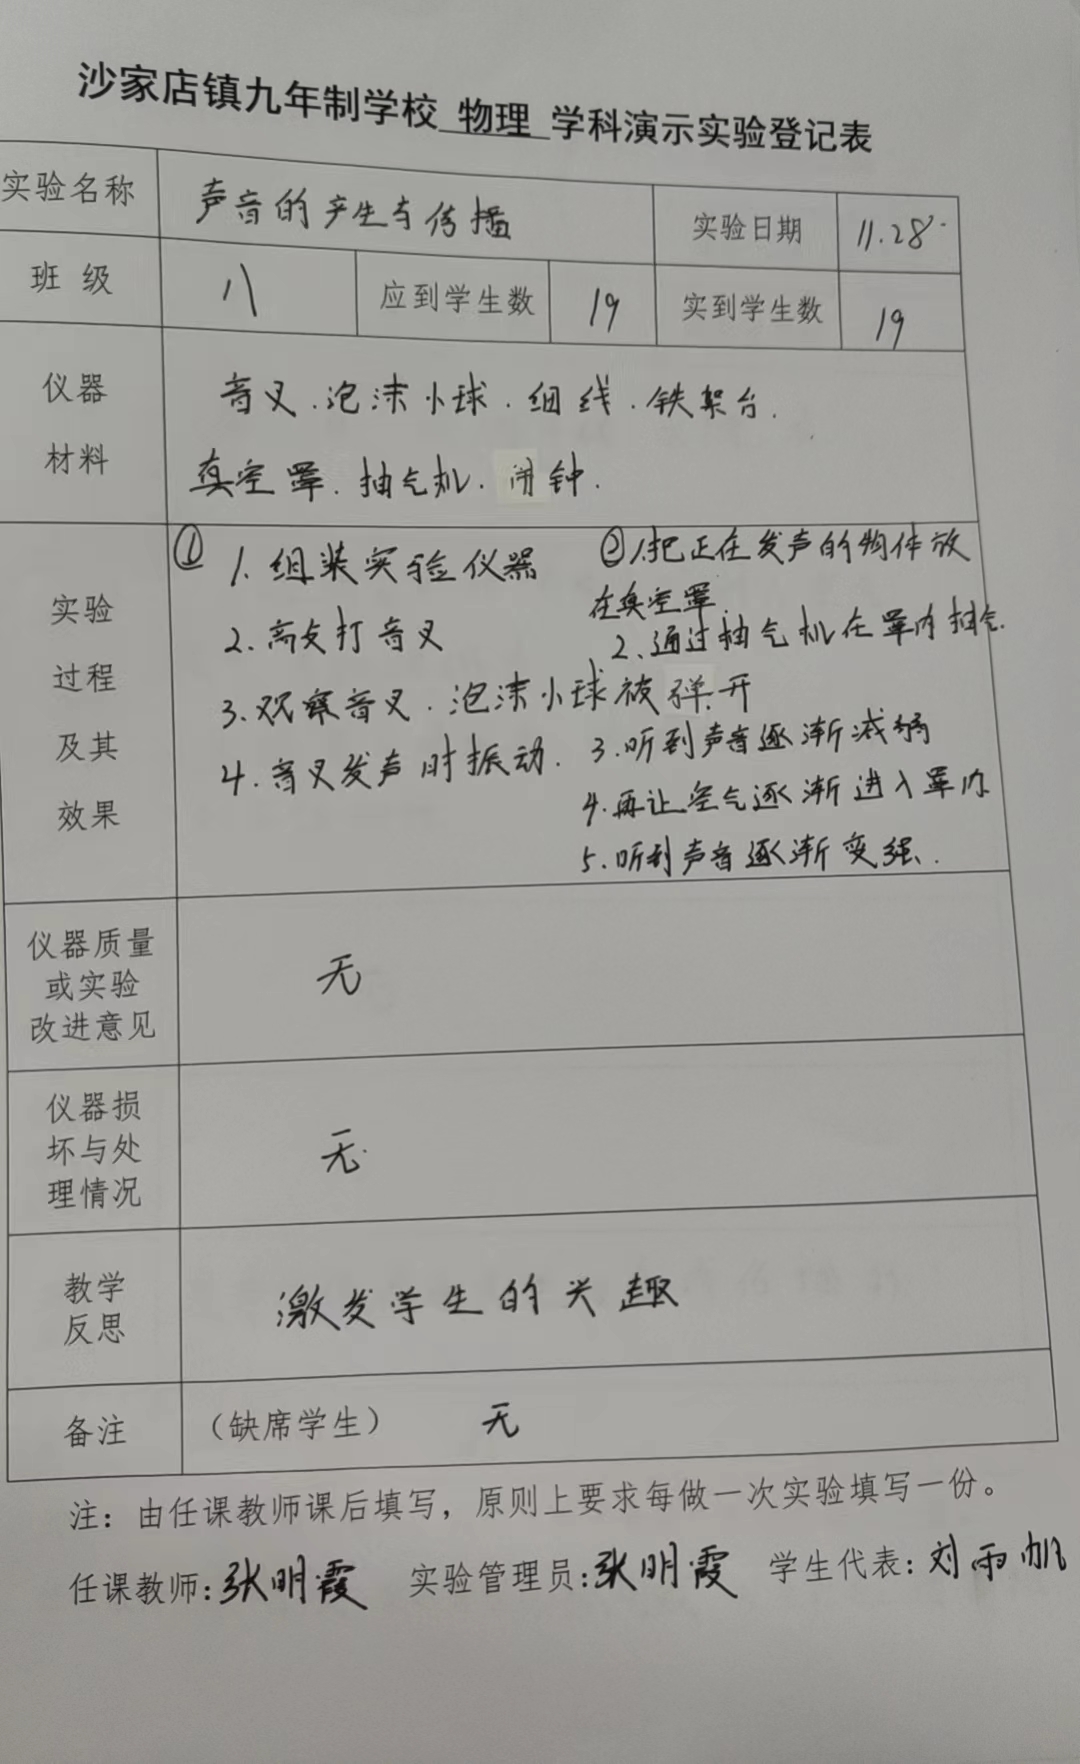 沙家店镇九年制学校 物理 学科演示实验登记表
实验名称 声音的产生与传播 实验日期 11.28
班 级 八 应到学生数 19 实到学生数 19
仪器
材料
音叉.泡沫小球.细线.铁架台.
真空罩.抽气机.闹钟.
实验
过程
及其
效果
① 1.组装实验仪器
2.高支打音叉
3.观察音叉.泡沫小球被弹开
4.音叉发声时振动.
② 1.把正在发声的物体放
在真空罩.
2.通过抽气机在罩内抽气.
3.听到声音逐渐减弱
4.再让空气逐渐进入罩内
5.听到声音逐渐变强.
仪器质量
或实验
改进意见
无
仪器损
坏与处
理情况
无.
教学
反思
激发学生的兴趣
备注 (缺席学生) 无
注：由任课教师课后填写，原则上要求每做一次实验填写一份。
任课教师:张明霞 实验管理员:张明霞 学生代表:刘雨帆